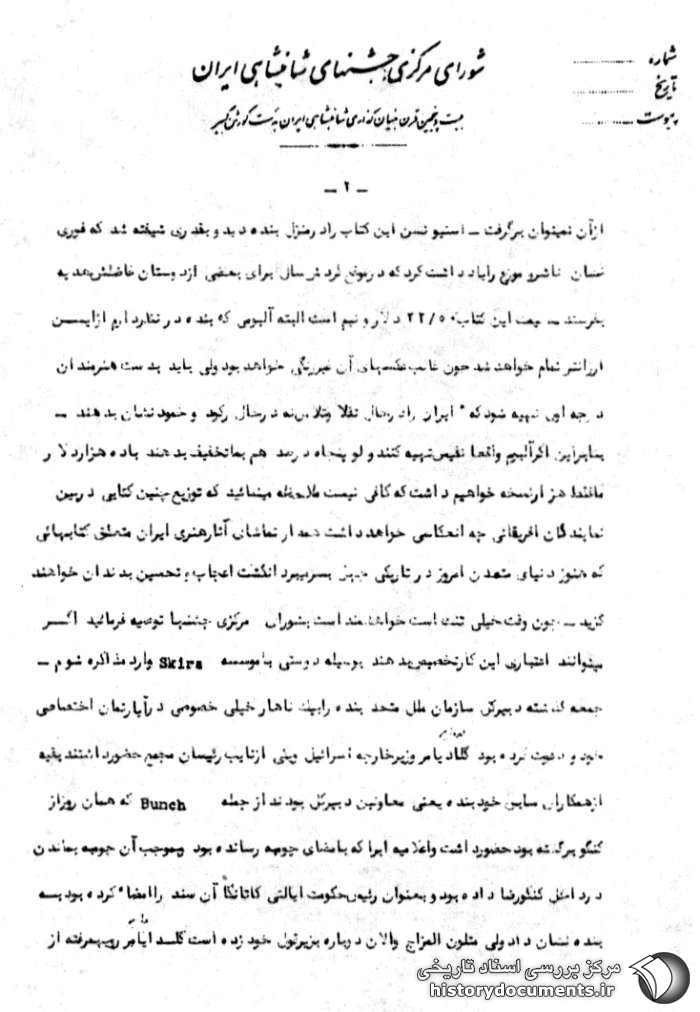 شماره
تاریخ
پیوست
شورای مرکزی جشنهای شاهنشاهی ایران
بیست و پنجمین قرن بنیان گذاری شاهنشاهی ایران بدست کورش کبیر
ـ ۲ ـ
ازآن نمیتوان برگرفت ـ استیونسن این کتاب رادرمنزل بنده دید و بقدری شیفته شد که فوری
نشان ناشر و موزع رایادداشت کرد که درموقع سال برای بعضی ازدوستان فاضلش هدیه
بفرستد ـ قیمت این کتاب ۲۲/۵۰ دلار و نیم است البته آلبومی که بنده درنظردارم ازایــن
ارزانتر تمام خواهد شد چون غالب عکسهای آن غیررنگی خواهد بود ولی باید بدست هنرمندان
درجه اول تهیه شود که ایران رادرحال تقلا وتلاش نه درحال رکود و خمود نشان بدهند ـ
بنابراین اگرآلبوم واقعا نفیس تهیه کنند و لو پنجاه درصد هم بماتخفیف بدهند باده هزاردلار
مافقط هزارنسخه خواهیم داشت که کافی نیست ملاحظه میفرمائید که توزیع چنین کتابی دربین
نمایندگان افریقائی چه انعکاسی خواهد داشت همه از تماشای آثارهنری ایران متعلق کتابهائی
که هنوز دنیای متمدن امروز در تاریکی جهل بسرمیبرد انگشت اعجاب و تحسین بدندان خواهند
گزید ـ چون وقت خیلی تنگ است خواهشمند است بشورای مرکزی جشنها توصیه فرمائید اگــر
میتوانند اعتباری این کارتخصیص بدهند بوسیله دوستی باموسسه Skira وارد مذاکره شوم ـ
جمعه گذشته دبیرکل سازمان ملل متحد بنده رابیک ناهار خیلی خصوصی درآپارتمان اختصاصی
خود دعوت کرده بود گلدا مایر وزیرخارجه اسرائیل ویکی ازنایب رئیسان مجمع حضورداشتند بقیه
ازهمکاران سابق خود بنده یعنی معاونین دبیرکل بودند ازجمله Bunch که همان روزاز
کنگو برگشته بود حضورداشت واعلامیه ایرا که بامضای چومبه رسانده بود وبموجب آن چومبه بماندن
درداخل کنگورضا داده بود و بعنوان رئیس حکومت ایالتی کاتانگا آن سند راامضاء کرده بود بـه
بنده نشان داد ولی متلون المزاج والان دوباره بزیرقول خود زده است گلدا مایر رویهمرفته از
مرکز بررسی اسناد تاریخی
historydocuments.ir